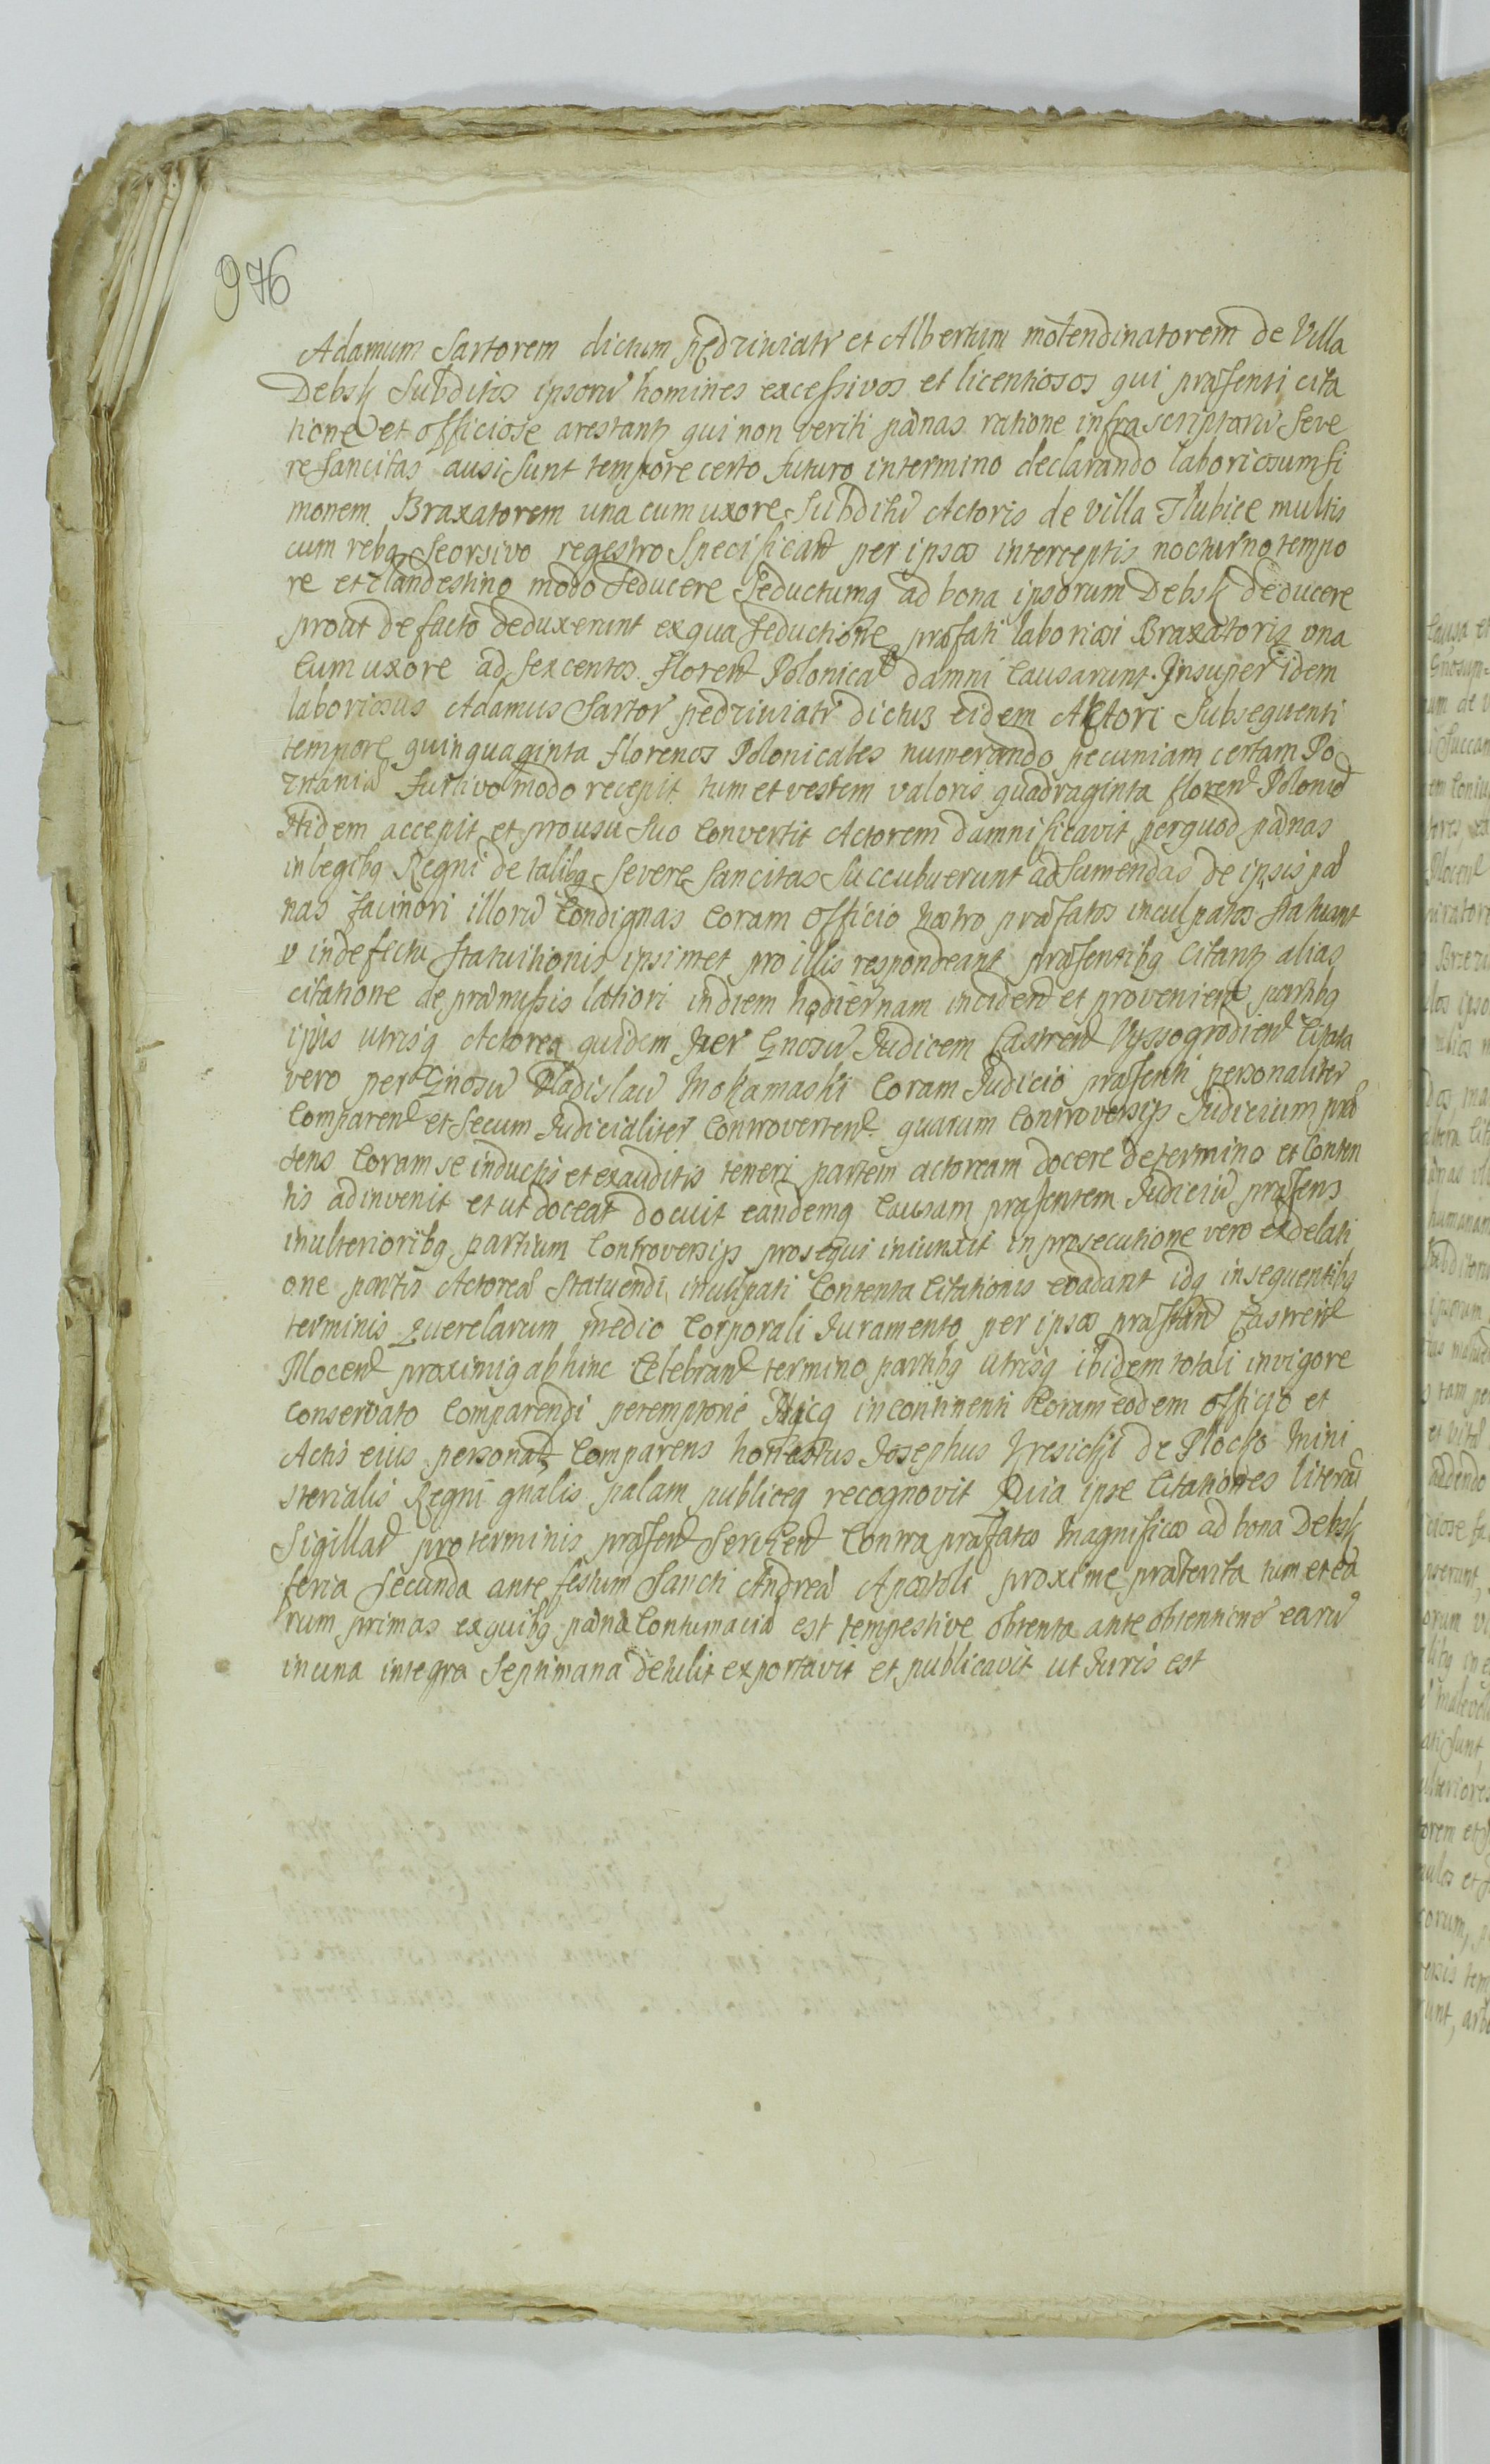 976
Adamum Sartorem dictum pędziwiatr et Albertum molendinatorem de Villa
Debsk Subditos ipsorũ homines excessivos et licentiosos qui præsenti cita
tione et officiose arestantʒ qui non veriti pænas ratione infrascriptorũ Seve
re sancitas ausi sunt tempore certo futuro in termino declarando laboriosum Si
monem Braxatorem una cum uxore Subditũ Actoris de villa Tłubice multis
cum rebq Seorsivo regestro Specificat per ipsos interceptis nocturno tempo
re et clandestino modo Seducere Seductumq ad bona ipsorum Debsk deducere
prout de facto deduxerunt ex qua Seductione præfati laboriosi Braxatoris una
Cum uxore ad sexcentos floren Polonical damni Causarunt. Insuper idem
laboriosus Adamus Sartor pędziwiatr dictus eidem Actori Subsequenti
tempore quinquaginta florenos Polonicales numerando pecuniam certam Po
znaniæ furtivo modo recepit tum et vestem valoris quadraginta floren Polonic
Itidem accepit et pro usu Suo Convertit Actorem damnificavit per quod pænas
in legibq Regni de talibq Severe Sancitas Succubuerunt ad Sumendas de ipsis pæ
nas facinori illorũ Condignas Coram Officio nostro præfatos inculpatos Statuant
v in defectu Statuitionis ipsimet pro illis respondeant præsentibq Citantʒ alias
citatione de præmissis latiori in diem hodiernam inciden et provenien partibq
ipis utrisq Actorea quidem per Gnosũ Iudicem Castren Vyssogrodien Citata
vero per Gnosũ Vladislaũ Mokamaski Coram Iudicio præsenti personaliter
Comparen et Secum Iudicialiter Controverten quarum Controversijs Iudicium præ
sens Coram se inductis et exauditis teneri partem actoream docere de termino et Conten
tis adinvenit et ut doceat docuit eandemq Causam præsentem Iudiciũ præsens
in ulterioribq partium Controversijs prosequi iniunxit in prosecutione vero ex delati
one partis Actoreæ Statuendi inculpati Contenta Citationis evadant idq in sequentibq
terminis Querelarum medio Corporali Iuramento per ipsos præstan Castren
Plocen proximiq abhinc Celebran termino partibq utrisq ibidem totali in vigore
Conservato Comparendi peremptorie Hicq incontinenti Coram eodem officio et
Actis eius personalr Comparens honestus Iosephus Kresicki de Plocko Mini
sterialis Regni gnalis palam publiceq recognovit Quia ipse Citationes literas
Sigillat pro terminis præsen Servien Contra præfatos Magnificos ad bona Debsk
feria Secunda ante festum Sancti Andreæ Apostoli proxime præterita tum et ea
rum primas ex quibq pæna Contumaciæ est tempestive obtenta ante obtentione earũ
in una integra Septimana detulit exportavit et publicavit ut Iuris est